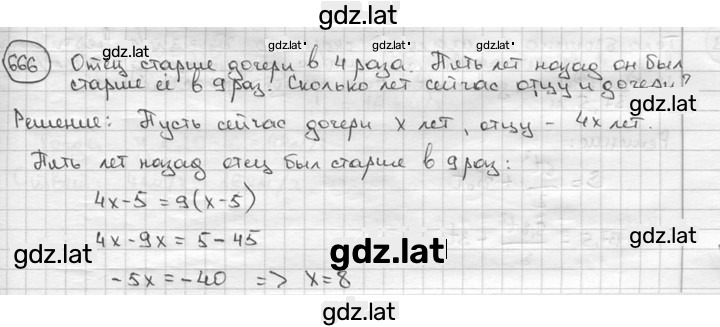 gdz.lat
gdz.lat gdz.lat gdz.lat gdz.lat
666 Отец старше дочери в 4 раза. Пять лет назад он был
старше её в 9 раз. Сколько лет сейчас отцу и дочери?
Решение: Пусть сейчас дочери x лет, отцу - 4x лет.
gdz.lat gdz.lat gdz.lat
Пять лет назад отец был старше в 9 раз:
4x-5=9(x-5)
gdz.lat gdz.lat
4x-9x=5-45
gdz.lat gdz.lat gdz.lat
-5x=-40 => x=8
gdz.lat